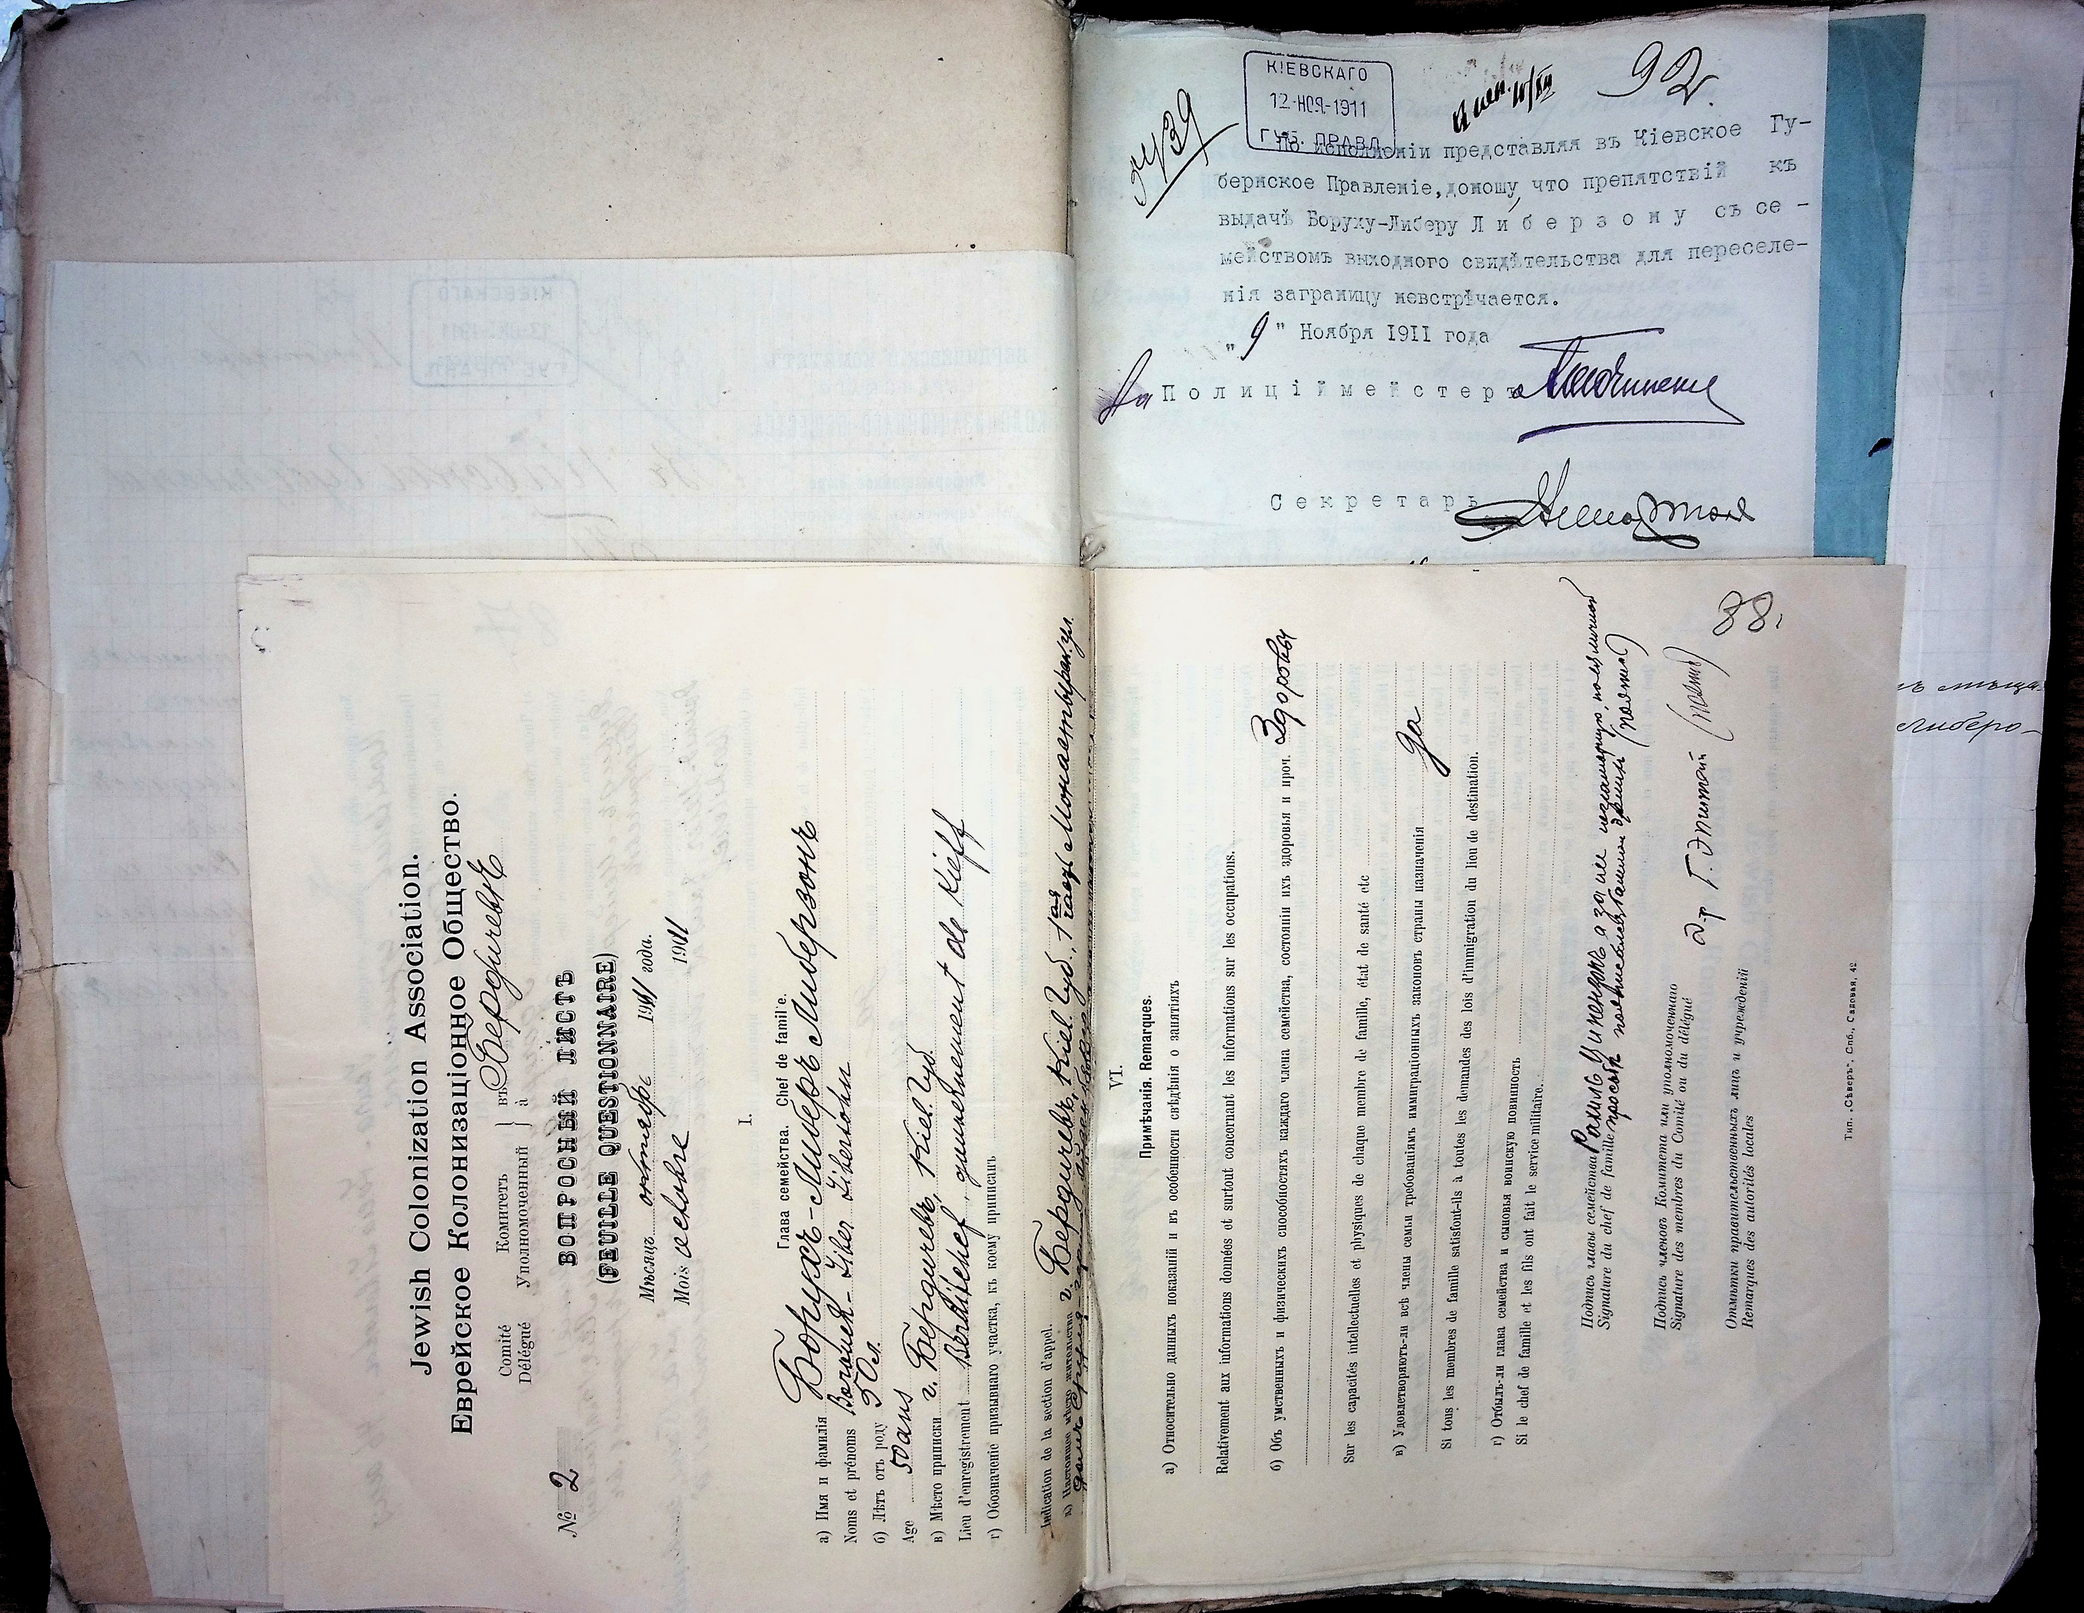 КІЕВСКАГО
12·НОЯ·1911
ГУБ. ПРАВЛ.
92
По исполненіи представляя въ Кіевское Гу-
бернское Правленіе, доношу, что препятствій къ
выдачѣ Боруху-Либеру Либерзону съ се-
мействомъ выходного свидѣтельства для переселе-
нія заграницу невстрѣчается.
"9" Ноября 1911 года
За Полиціймейстера
Секретарь
Jewish Colonization Association.
Еврейское Колонизаціонное Общество.
Comité Комитетъ въ Бердичевѣ
Délégué Уполномоченный à
№ 2
ВОПРОСНЫЙ ЛИСТЪ
(FEUILLE QUESTIONNAIRE)
Мѣсяцъ октябрь 1911 года.
Mois octobre 1911
I.
Глава семейства. Chef de famille.
а) Имя и фамилія Борухъ-Либеръ Либерзонъ
Noms et prénoms Borouch-Liber Libersohn
б) Лѣтъ отъ роду 50 л.
Age 50 ans
в) Мѣсто приписки г. Бердичевъ, Kiel. Губ.
Lieu d'enregistrement Berditchef, gouvernement de Kieff
г) Обозначеніе призывнаго участка, къ коему приписанъ
Indication de la section d'appel.
д) Настоящее мѣсто жительства г. Бердичевъ, Kiel. Губ., 1ая часть Монастырская ул.
VI.
Примѣчанія. Remarques.
а) Относительно данныхъ показаній и въ особенности свѣдѣнія о занятіяхъ
Relativement aux informations données et surtout concernant les informations sur les occupations.
б) Объ умственныхъ и физическихъ способностяхъ каждаго члена семейства, состояніи ихъ здоровья и проч. Здоровы
Sur les capacités intellectuelles et physiques de chaque membre de famille, état de santé etc
в) Удовлетворяютъ-ли всѣ члены семьи требованіямъ иммиграціонныхъ законовъ страны назначенія да
Si tous les membres de famille satisfont-ils à toutes les demandes des lois d'immigration du lieu de destination.
г) Отбылъ-ли глава семейства и сыновья воинскую повинность
Si le chef de famille et les fils ont fait le service militaire.
Подпись главы семейства
Signature du chef de famille
Подпись членовъ Комитета или уполномоченнаго
Signature des membres du Comité ou du délégué
Отмѣтки правительственныхъ лицъ и учрежденій
Remarques des autorités locales
88.
Тип. „Сѣверъ", Спб., Садовая, 42